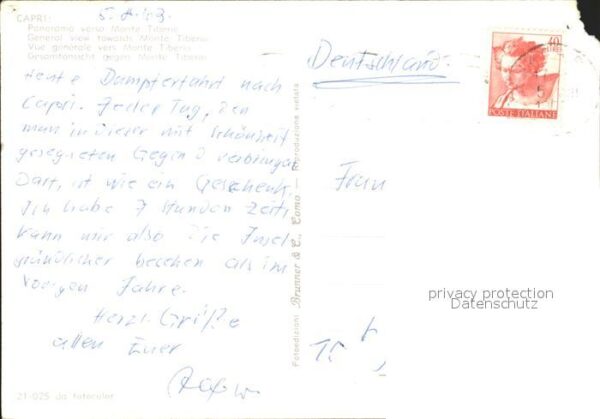 CAPRI:
Panorama verso Monte Tiberio
General view towards Monte Tiberio
Vue générale vers Monte Tiberio
Gesamtansicht gegen Monte Tiberio
Heute Dampferfahrt nach
Capri. Jeder Tag, den
man in dieser mit Schönheit
gesegneten Gegend verbringen
Darf, ist wie ein Geschenk.
Ich habe 7 Stunden Zeit,
kann mir also die Insel
gründlicher besehen als im
vorigen Jahre.
Herzl. Grüße
allen Euer
21-025 Ja fotocolor
Fotoedizioni Brunner & C., Como — Riproduzione vietata
Deutschland
40
POSTE ITALIANE
Frau
privacy protection
Datenschutz